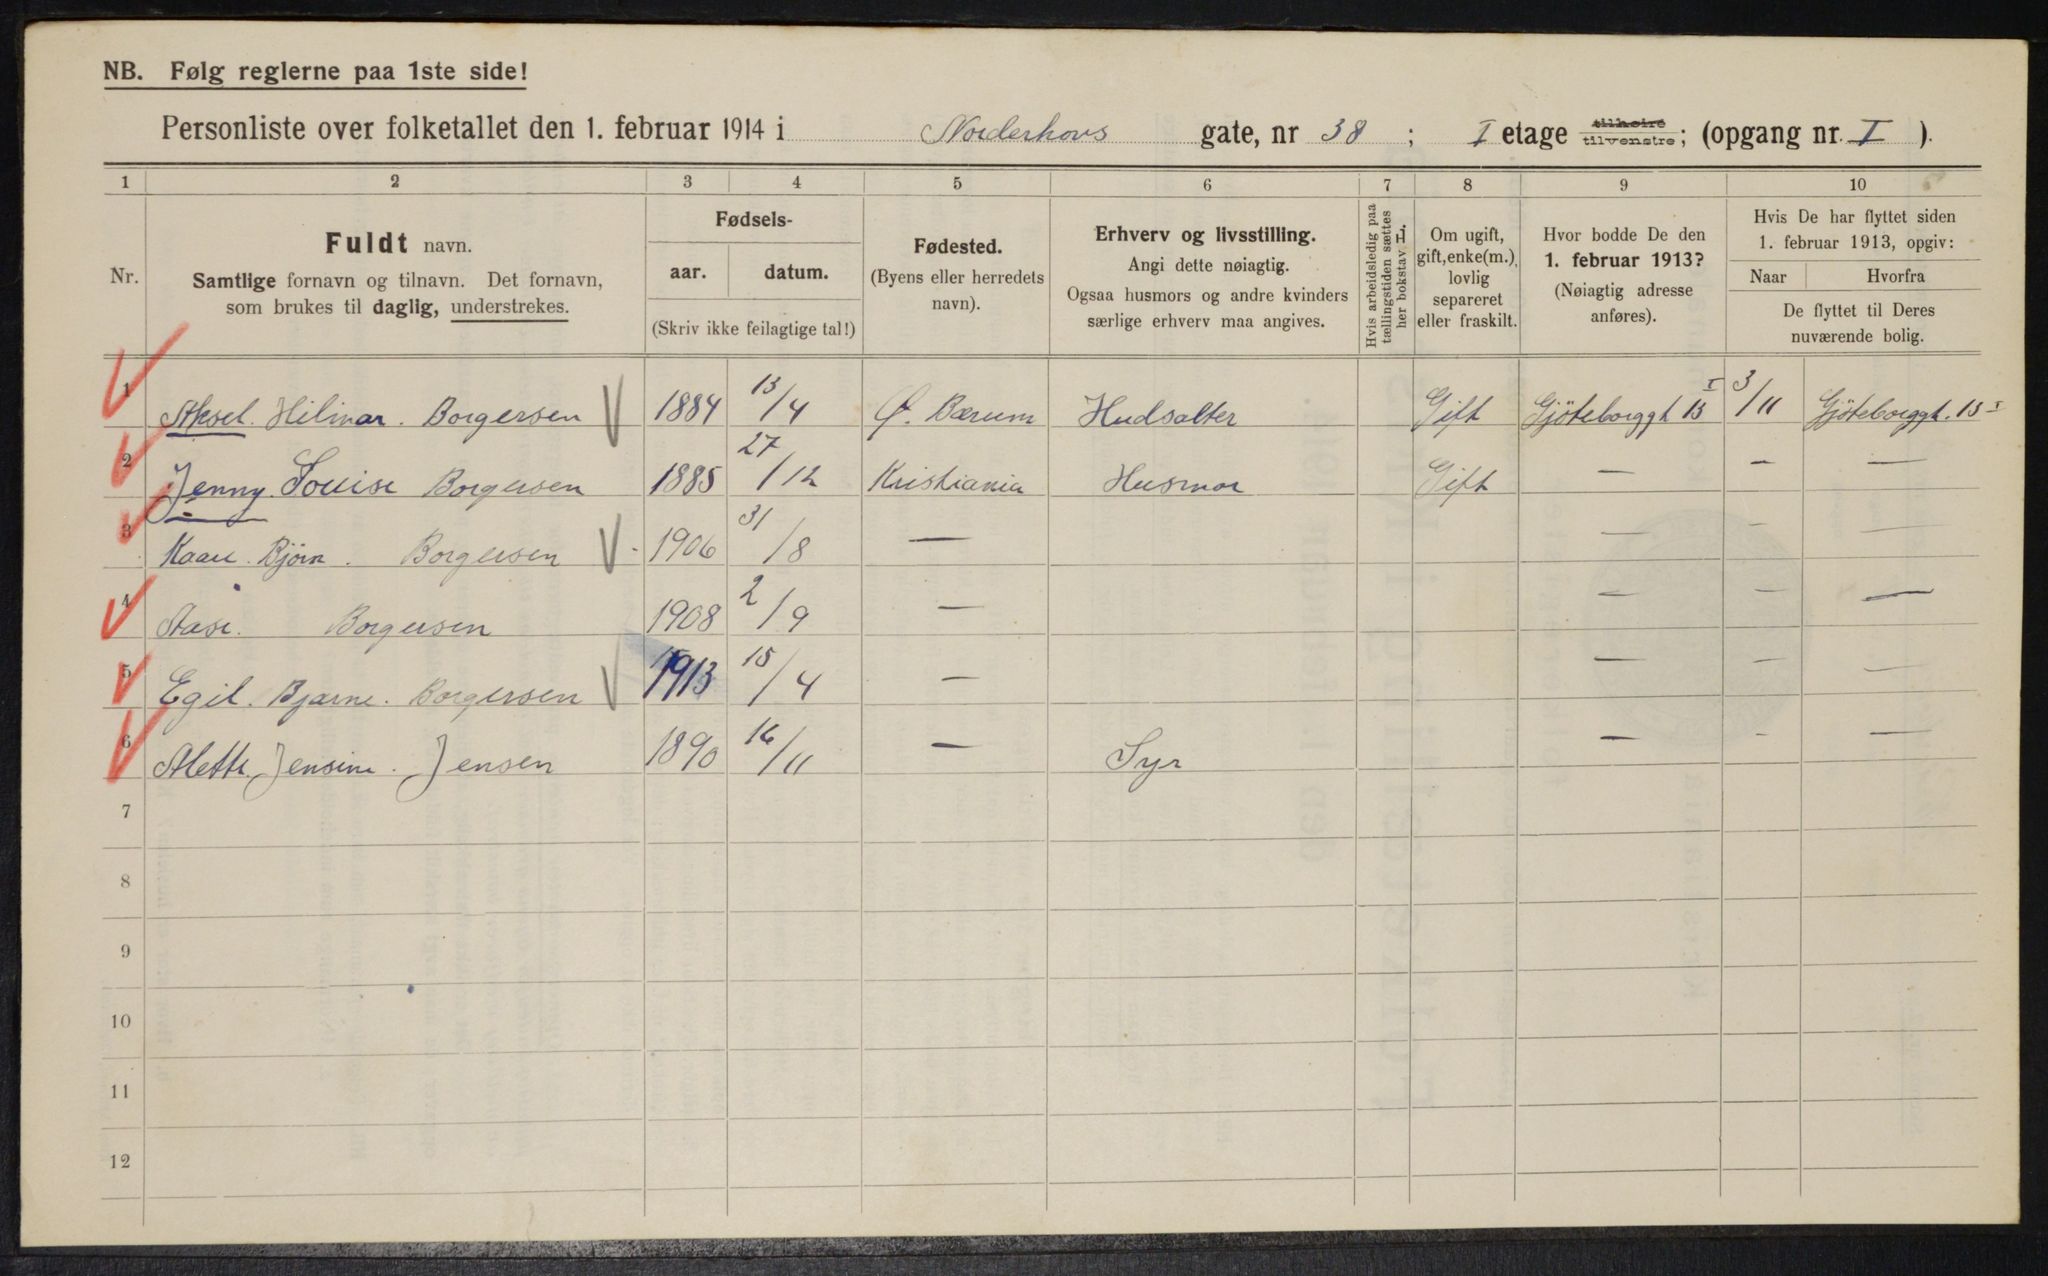 NB. Følg reglerne paa 1ste side!
Personliste over folketallet den 1. februar 1914 i Norderhovs gate, nr 38 ; I etage tilhøire tilvenstre; (opgang nr. I ).
1 2 3 4 5 6 7 8 9 10
Nr.
Fuldt navn.
Samtlige fornavn og tilnavn. Det fornavn,
som brukes til daglig, understrekes.
Fødsels-
aar. datum.
(Skriv ikke feilagtige tal!)
Fødested.
(Byens eller herredets
navn).
Erhverv og livsstilling.
Angi dette nøiagtig.
Ogsaa husmors og andre kvinders
særlige erhverv maa angives.
Hvis arbeidsledig paa
tællingstiden sættes
her bokstav L
Om ugift,
gift, enke(m.),
lovlig
separeret
eller fraskilt.
Hvor bodde De den
1. februar 1913?
(Nøiagtig adresse
anføres).
Hvis De har flyttet siden
1. februar 1913, opgiv:
Naar Hvorfra
De flyttet til Deres
nuværende bolig.
1 Aksel. Hilmar. Borgersen 1884 13/4 Ø. Bærum Hudsalter Gift Gjöteborggt 13 I 3/11 Gjöteborggt. 13 I
2 Jenny Louise Borgersen 1885 27/12 Kristiania Husmor Gift — — —
3 Kaare. Bjørn. Borgersen 1906 31/8 — — — —
4 Aase. Borgersen 1908 2/9 — — — —
5 Egil. Bjarne. Borgersen 1913 15/4 — — — —
6 Alette. Jensine. Jensen 1890 16/11 — Syr — — —
7
8
9
10
11
12